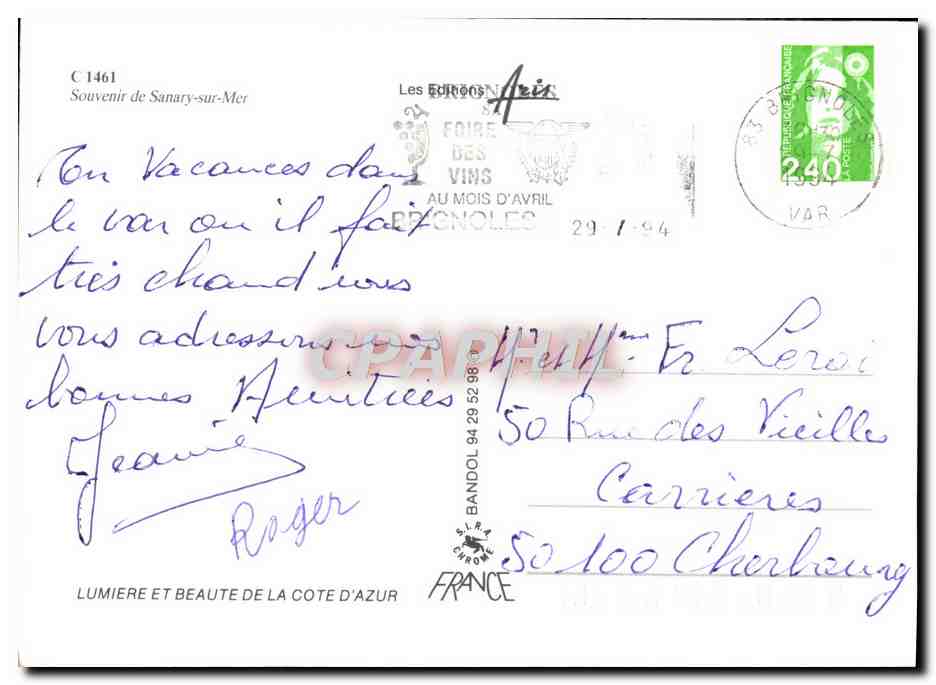 C 1461
Souvenir de Sanary-sur-Mer
Les Editions Aris
BRIGNOLES
FOIRE
DES
VINS
AU MOIS D'AVRIL
BRIGNOLES
29 - 7 - 94
83 BRIGNOLES
1994
VAR
REPUBLIQUE FRANÇAISE
2,40
LA POSTE
En Vacances dans
le var ou il fait
très chaud nous
vous adressons nos
bonnes Amitiées
Jeanine
Roger
LUMIERE ET BEAUTE DE LA COTE D'AZUR
CPAPHIL
BANDOL 94 29 52 98
S.I.R.A.
CHROME
FRANCE
Mr et Mme Fr Leroi
50 Rue des Vieilles
Carrieres
50100 Cherbourg